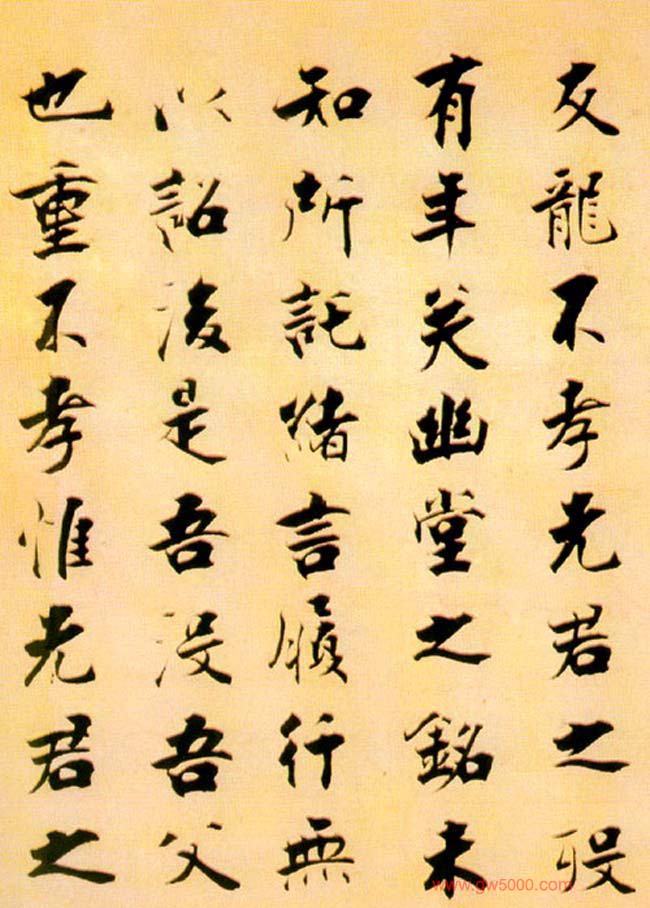 友龍不孝先君之歿
有年矣幽堂之銘未
知所託緒言履行無
以詔後是吾没吾父
也重不孝惟先君之
www.gw5000.com